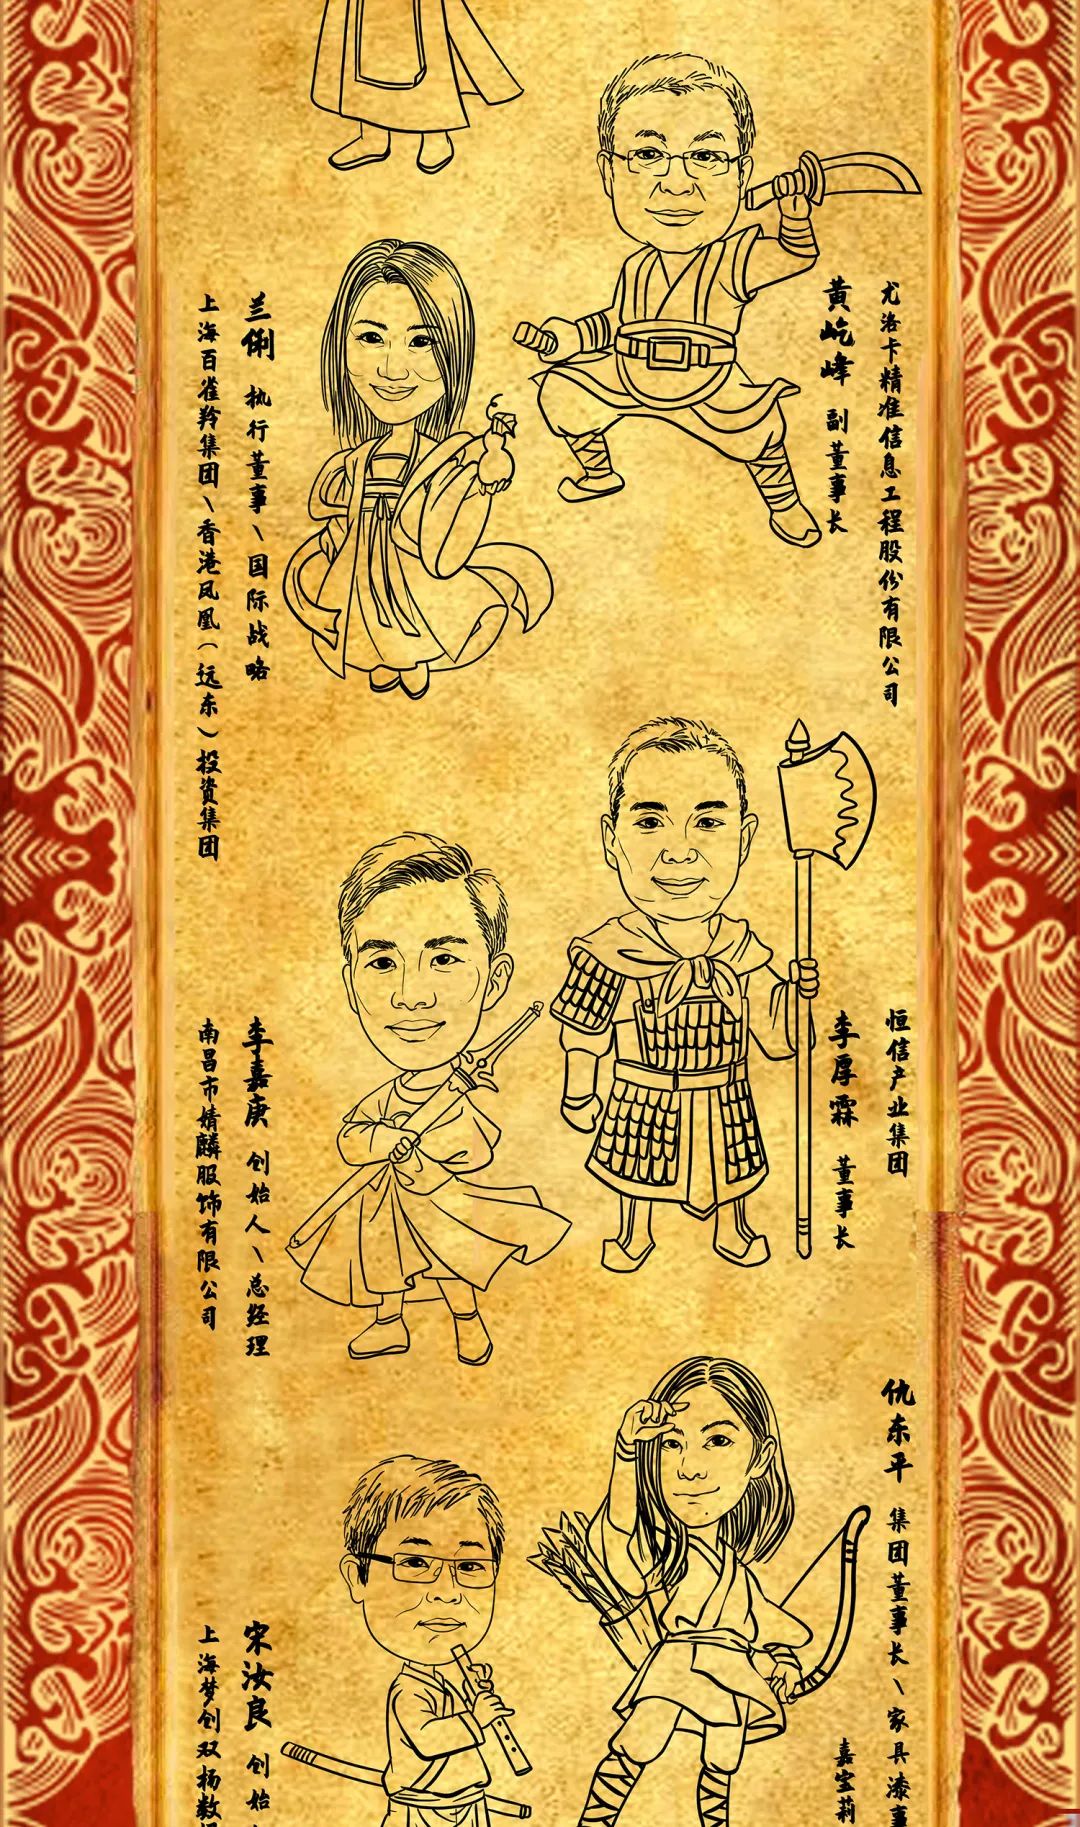 尤洛卡精准信息工程股份有限公司
黄屹峰 副董事长
兰俐 执行董事\国际战略
上海百雀羚集团\香港凤凰(远东)投资集团
恒信产业集团
李厚霖 董事长
李嘉庚 创始人\总经理
南昌市婧麟服饰有限公司
仇东平 集团董事长\家具漆事
嘉宝莉
宋汝良 创始
上海梦创双杨数